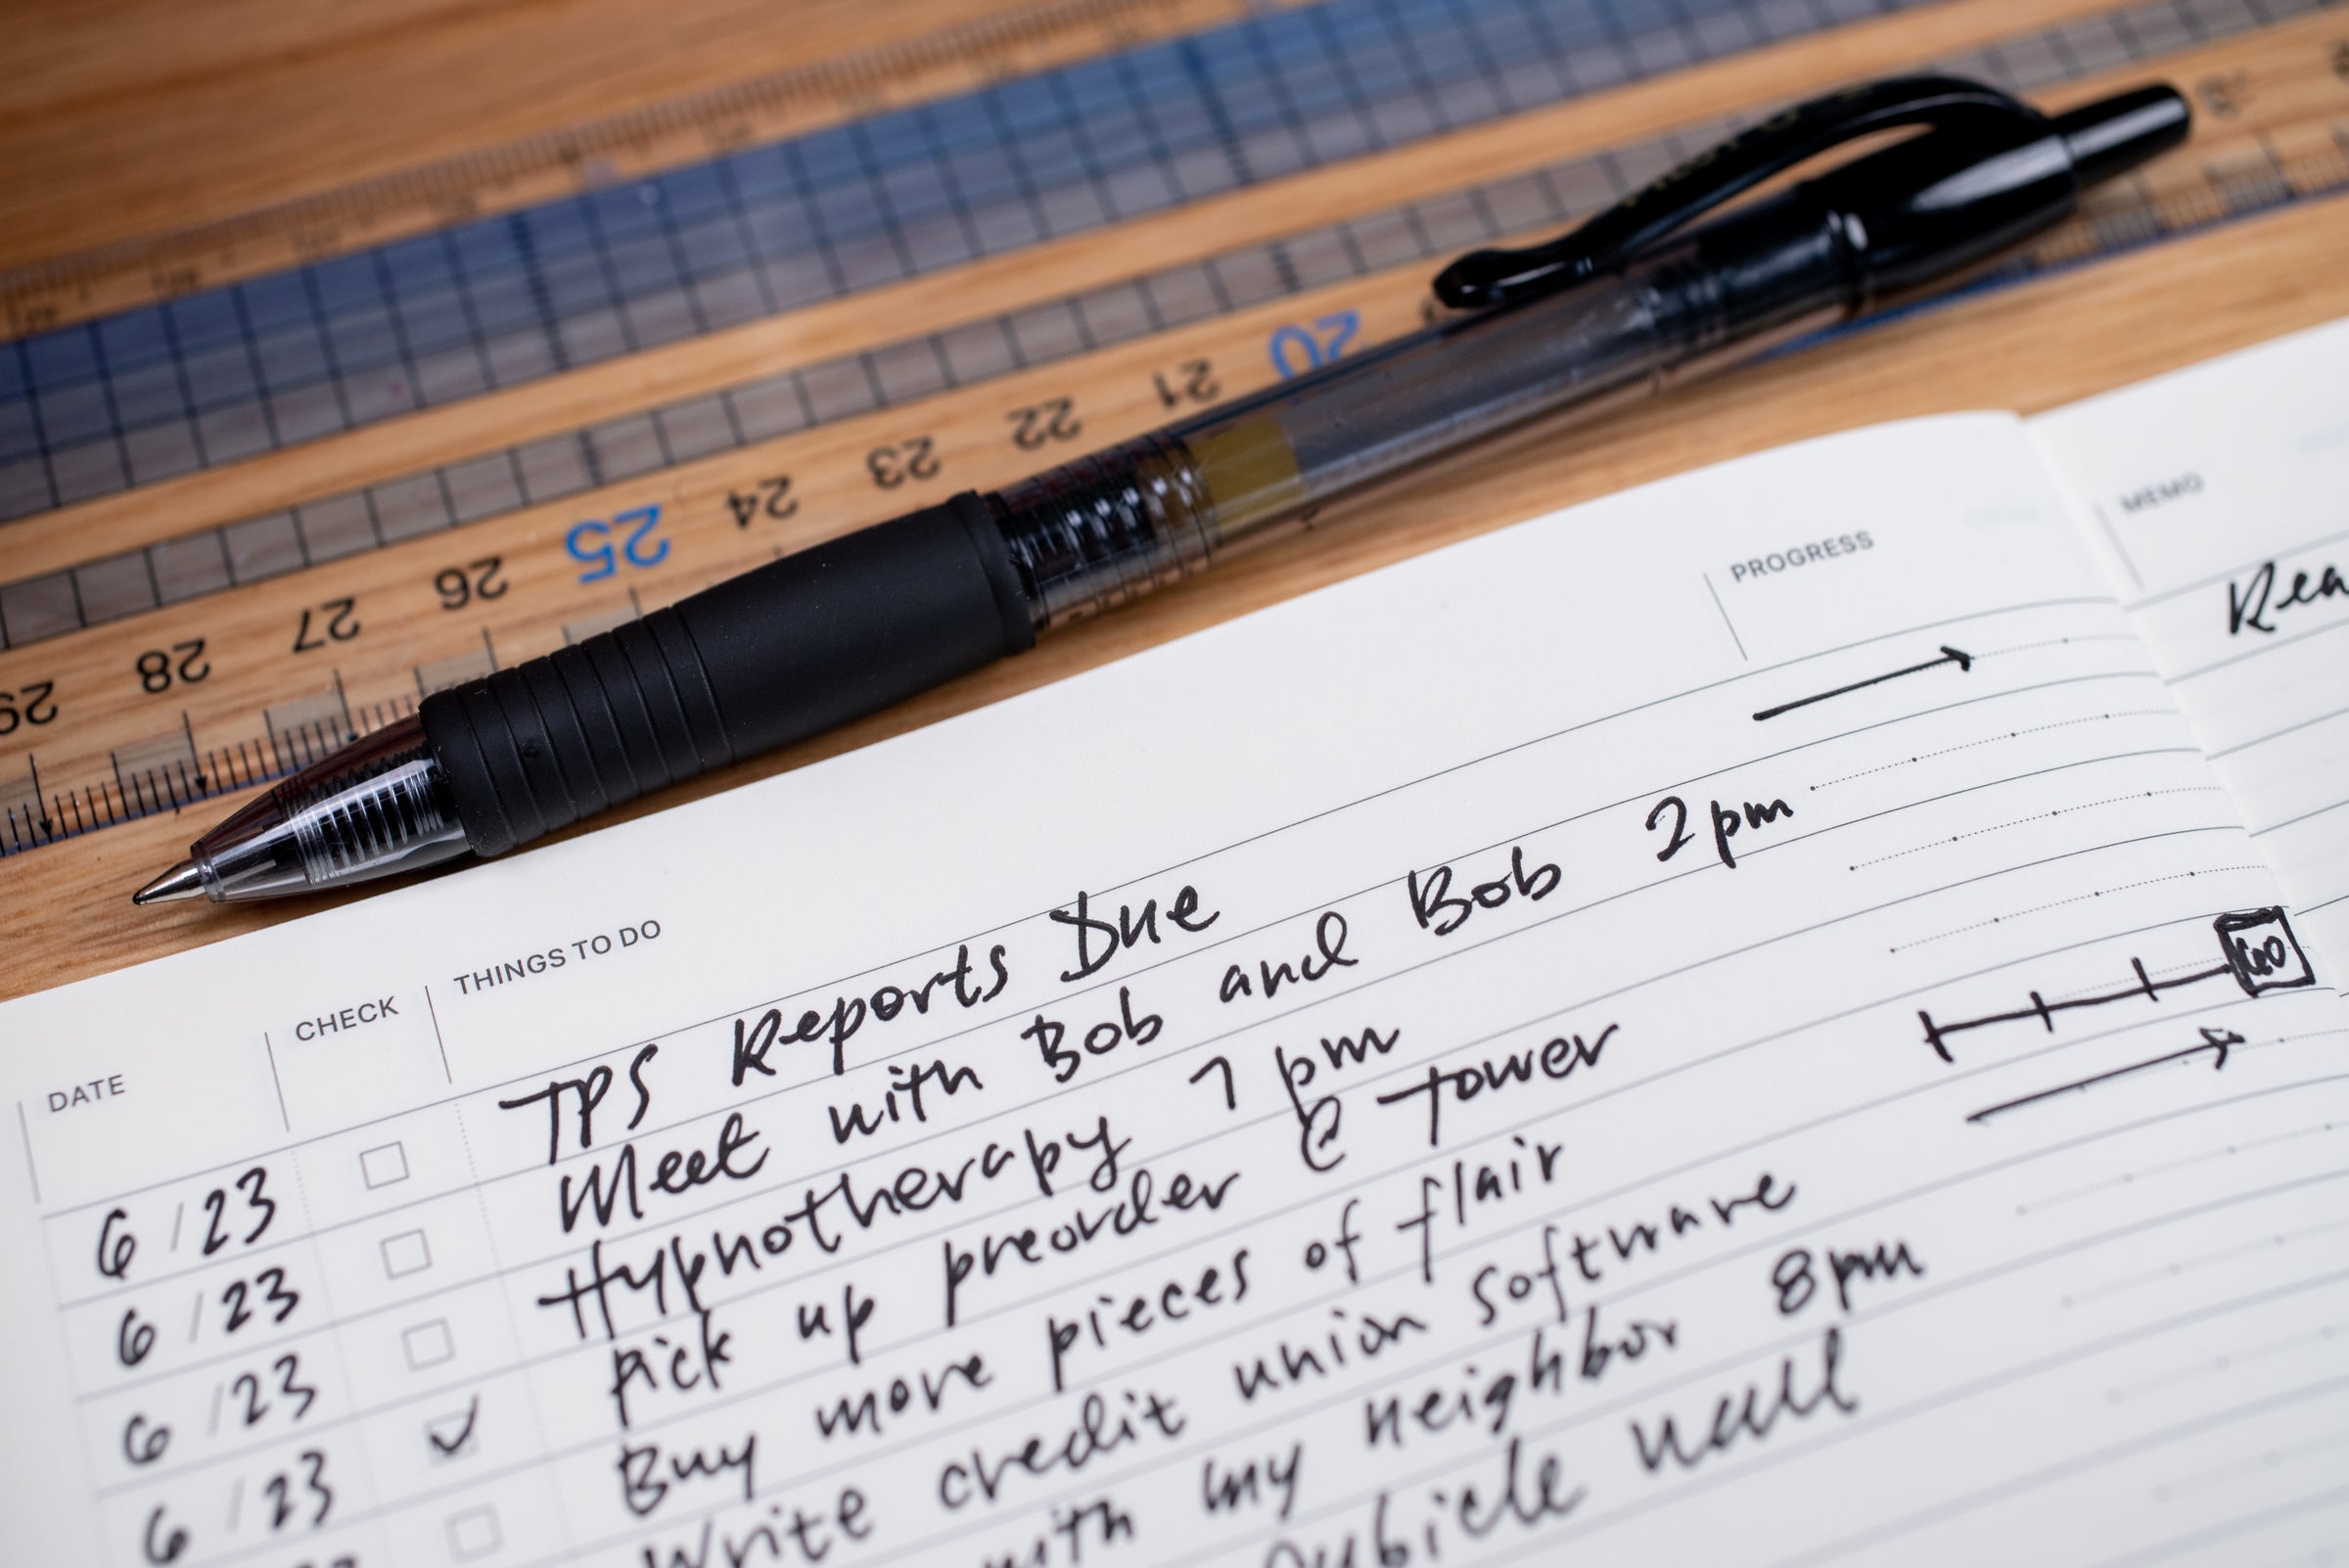 20
21
22
23
24
25
26
27
28
29
DATE CHECK THINGS TO DO PROGRESS
6/23 TPS Reports Due
6/23 Meet with Bob and Bob 2pm
6/23 Hypnotherapy 7 pm
6/23 Pick up preorder @ Tower
Buy more pieces of flair
Write credit union software
with my neighbor 8pm
cubicle wall
MEMO